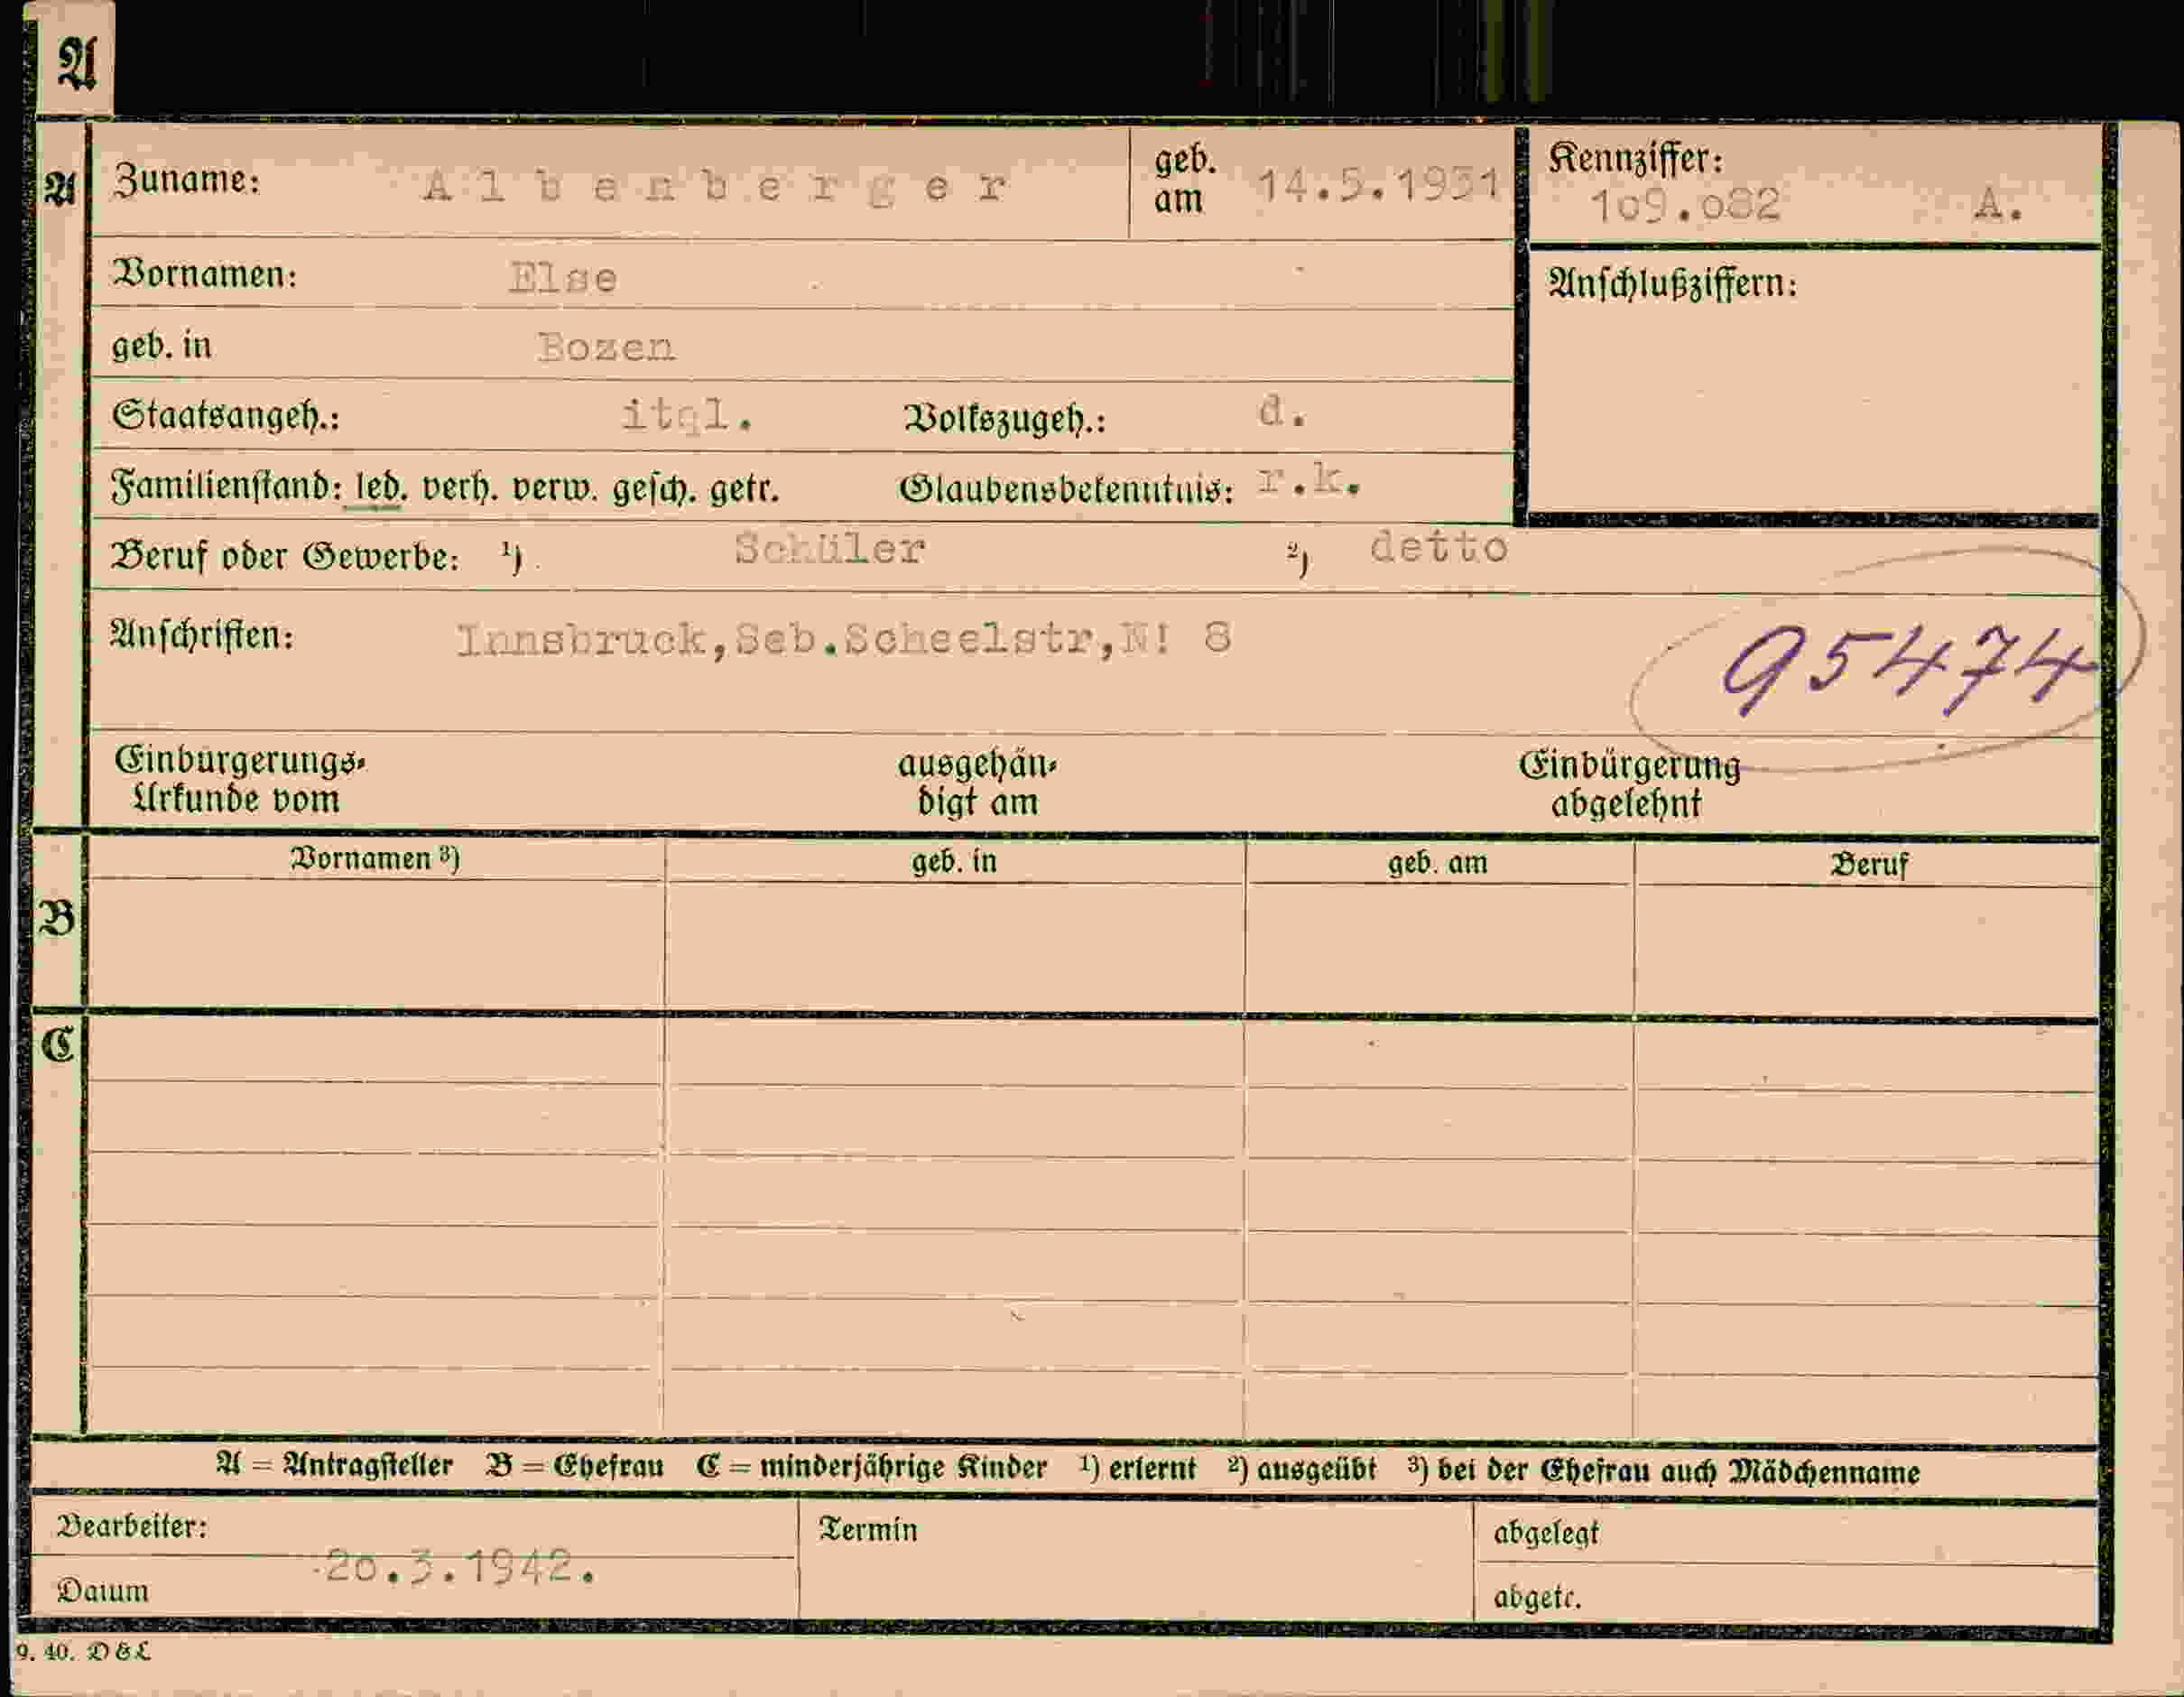 A
A Zuname: Albenberger geb. am 14.5.1931 Kennziffer: 109.082 A.
Vornamen: Else Anschlußziffern:
geb. in Bozen
Staatsangeh.: ital. Volkszugeh.: d.
Familienstand: led. verh. verw. gesch. getr. Glaubensbekenntnis: r.k.
Beruf oder Gewerbe: 1) Schüler 2) detto
Anschriften: Innsbruck,Seb.Scheelstr,N! 8
95474
Einbürgerungs-Urkunde vom ausgehändigt am Einbürgerung abgelehnt
Vornamen 3) geb. in geb. am Beruf
B
C
A = Antragsteller B = Ehefrau C = minderjährige Kinder 1) erlernt 2) ausgeübt 3) bei der Ehefrau auch Mädchenname
Bearbeiter: Termin abgelegt
20.3.1942.
Datum abgetr.
9. 40. D & L